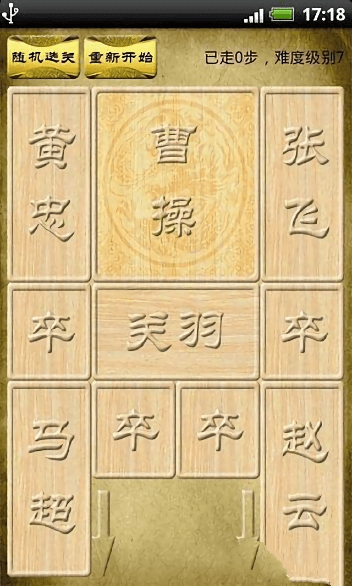 17:18
随机选关 重新开始 已走0步，难度级别7
黄忠 曹操 张飞
卒 关羽 卒
马超 卒 卒 赵云